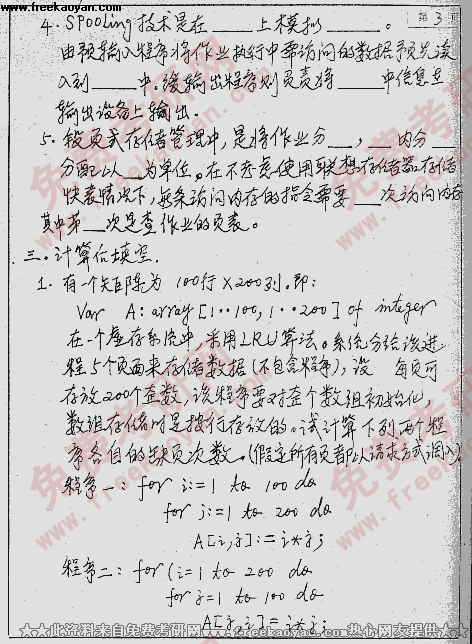 www.freekaoyan.com
第 3
4. SPooling 技术是在____上模拟____。
由预输入程序将作业执行中需访问的数据预先读
入到____中, 缓输出程序则负责将____中信息在
输出设备上输出.
5. 段页式存储管理中, 是将作业分__, __内分__
分配以__为单位。在不考虑使用联想存储器存储
快表情况下, 每条访问内存的指令需要__次访问内存
其中第__次是查作业的页表。
三. 计算位填空.
1. 有一个矩阵为 100行×200列. 即:
Var A: array [1··100, 1··200] of integer
在一个虚存系统中, 采用LRU算法。系统分给该进
程5个页面来存储数据(不包含程序), 设 每页可
存放200个整数, 该程序要对整个数组初始化,
数组存储时是按行存放的。试计算下列两个程
序各自的缺页次数。(假定所有页都以请求方式调入)
程序一: for i:=1 to 100 do
for j:=1 to 200 do
A[i,j]:=i*j;
程序二: for (i=1 to 200 do
for j=1 to 100 do
A[j,i]=i*j;
★★此资料来自免费考研网 freekaoyan.com热心网友提供★★